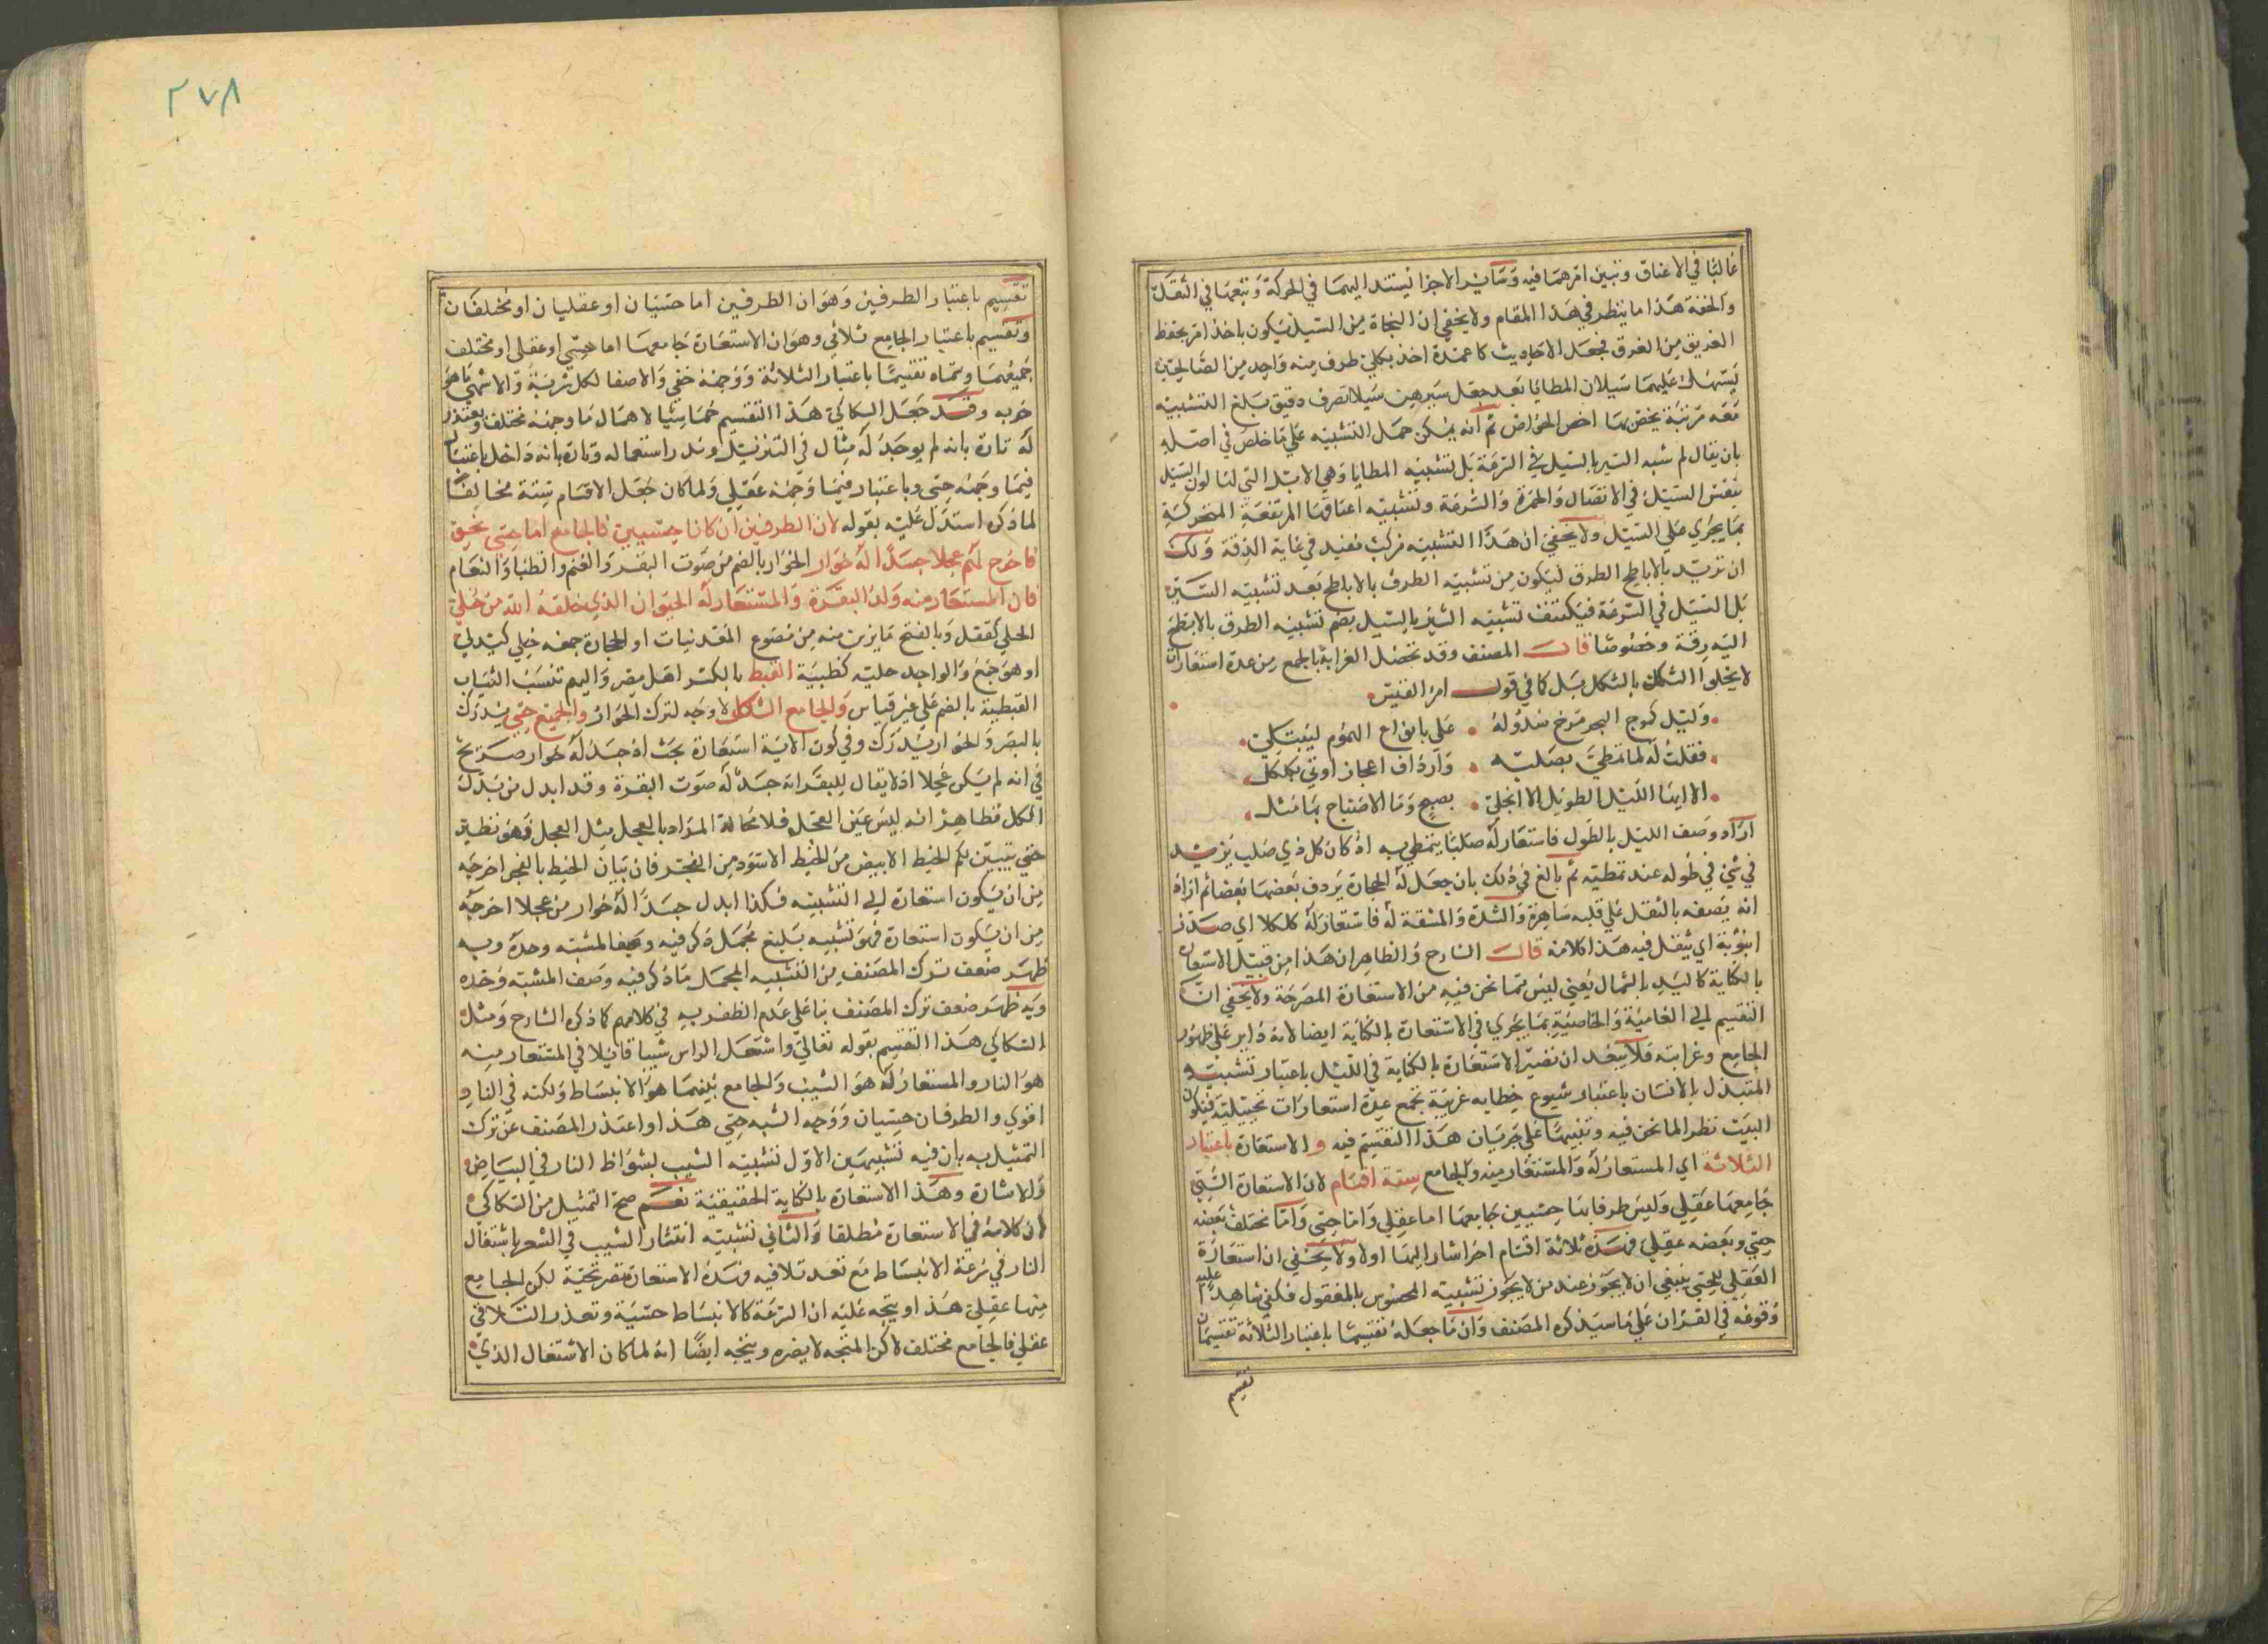 غالبا في الاعناق وتبين امرهما فيه وسائر الاجزا تستند اليهما في الحركة وتتبعها في الثقل
والخفة هذا ما ينظر في هذا المقام ولا يخفي ان النجاة من السيل يكون باخذ امر يحفظ
الغريق من الغرق فجعل الاحاديث كاعمدة اخذ بكل طرف منه واحد من
عليهما سيلان المطايا بعد جعل سيرهن سيلا تصرف دقيق بلغ التشبيه
معه مرتبة يختص بها اخص الخواص ثم انه يمكن حمل التشبيه علي ما خلص في اصله
بان يقال لم شبه السير بالسيل في السرعة بل تشبيه المطايا وهي الابل التي لنا لون السيل
بنفس السيل في الاتصال والحمرة والسرعة وتشبيه اعناقها المرتفعة المتحركة
بما يجري علي السيل ولا يخفي ان هذا التشبيه مركب مفيد في غاية الدقة ولك
ان تريد بالاباطح الطرق ليكون من تشبيه الطرق بالاباطح بعد تشبيه السير
بل السيل في السرعة فيكتنف تشبيه السير بالسيل بضم تشبيه الطرق بالابطح
اليه دقة وخصوصا قال المصنف وقد تحصل الغرابة بالجمع من عدة استعارات
لا يخلوا الشكل بالشكل بل كما في قول امرؤ القيس
وليل كموج البحر مرخ سدوله علي بانواع الهموم ليبتلي
فقلت له لما تمطي بصلبه واردف اعجازا وني بكلكل
الا ايها الليل الطويل الا انجلي بصبح وما الاصباح بامثل
اراد وصف الليل بالطول فاستعار له صلبا يتمطي به اذ كان كل ذي صلب يزيد
في شي في طوله عند تمطيه ثم بالغ في ذلك بان جعل له اعجازا يردف بعضها بعضا ثم اراد
انه يصفه بالثقل علي قلبه ساهره والشدة والمشقة له فاستعار له كلكلا اي صدرا
اي يثقل فيه هذا كلامه قال الشارح والظاهر ان هذا من قبيل الاستعارة
بالكناية كاليد بالشمال يعني ليس مما نحن فيه من الاستعارة المصرحة ولا يخفي ان
التقسيم الي العامية والخاصية مما يجري في الاستعارة بالكناية ايضا لانه داير علي ظهور
الجامع وغرابته فلا يبعد ان تصير الاستعارة بالكناية في الليل باعتبار تشبيهه
المتبذل بالانسان باعتبار شيوع خطابه غريبة بجمع عدة استعارات تخييلية فيكون
البيت نظر الما نحن فيه وتنبيها علي جريان هذا التقسيم فيه و الاستعارة باعتبار
الثلاثة اي المستعار له والمستعار منه والجامع ستة اقسام لان الاستعارة التي
جامعها عقلي وليس طرفاها حسيين جامعها اما عقلي واما حسي واما مختلف بعضه
حسي وبعضه عقلي فهذه ثلاثة اقسام اخر اشار اليها اولا ولا يخفي ان استعارة
العقلي للحسي ينبغي ان لا يجوز عند من لا يجوز تشبيه المحسوس بالمعقول فكفي شاهدا عليه
وقوعه في القران علي ما سيذكره المصنف وان ما جعله تقسيما باعتبار الثلاثة تقسيمان
تقسيم
٢٧٨
تقسيم باعتبار الطرفين وهو ان الطرفين اما حسيان او عقليان او مختلفان
وتقسيم باعتبار الجامع ثلاثي وهو ان الاستعارة جامعها اما حسي او عقلي او مختلف
جميعهما وسماه تقسيما باعتبار الثلاثة ووجهه خفي والاصفا لكل شربة والاشهي ما هو
حربه وقد جعل السكاكي هذا التقسيم خماسيا لاهمال ما وجهه مختلف ويعتذر
له تارة بانه لم يوجد له مثال في التنزيل وندر استعماله وتارة بانه داخل باعتبار
فيما وجهه حسي وباعتبار فيما وجهه عقلي ولما كان جعل الاقسام ستة مخالفا
لما ذكره استدل عليه بقوله لان الطرفين ان كانا حسيين فالجامع اما حسي نحو
فاخرج لهم عجلا جسدا له خوار الخوار بالضم من صوت البقر والغنم والظبا والنعام
فان المستعار منه ولد البقرة والمستعار له الحيوان الذي خلقه الله من حلي
الحلي كفعل وبالفتح ما يزين به من مصنوع المعدنيات او الحجارة جمعه حلي كيدلي
او هو جمع والواحد حلية كظبية القبط بالكسر اهل مصر واليهم تنسب الثياب
القبطية بالضم علي غير قياس والجامع الشكل لا وجه لترك الخوار والجميع حسي يدرك
بالبصر والخوار يدرك وفي كون الاية استعارة بحث اذ جسدا له خوار صريح
في انه لم يكن عجلا اذ لا يقال للبقر انه جسد له صوت البقرة وقد ابدل من بدل
الكل فظاهر انه ليس عين العجل فلا محالة المراد بالعجل مثل العجل فهو نظير
حتي يتبين لكم الخيط الابيض من الخيط الاسود من الفجر فان بيان الخيط بالفجر اخرجه
من ان يكون استعارة الي التشبيه فكذا ابدال جسدا له خوار من عجلا اخرجه
من ان يكون استعارة فهو تشبيه بليغ مجمل ذكر فيه وصف المشبه وحده وبه
ظهر ضعف ترك المصنف من التشبيه المجمل ما ذكر فيه وصف المشبه وحده
وبه ظهر ضعف ترك المصنف بنا علي عدم الظفر به في كلامهم كما ذكره الشارح ومثل
السكاكي هذا القسم بقوله تعالي واشتعل الراس شيبا قائلا في المستعار منه
هو النار والمستعار له هو الشيب والجامع بينهما هو الانبساط ولكنه في النار
اقوي والطرفان حسيان ووجه الشبه حسي هذا واعتذر المصنف عن ترك
التمثيل به بان فيه تشبيهين الاول تشبيه الشيب بشواظ النار في البياض
والاشارة وهذا الاستعارة بالكناية الحقيقية نعم صح التمثيل من السكاكي
لان كلامه في الاستعارة مطلقا والثاني تشبيه انتشار الشيب في الشعر باشتعال
النار في سرعة الانبساط مع تعذر تلافيه فهذه الاستعارة تصريحية لكن الجامع
منها عقلي هذا ويتجه عليه ان السرعة كالانبساط حسية وتعذر التلافي
عقلي فالجامع مختلف لاكن المتجه لا يضره ويتجه ايضا انه لما كان الاشتعال الذي